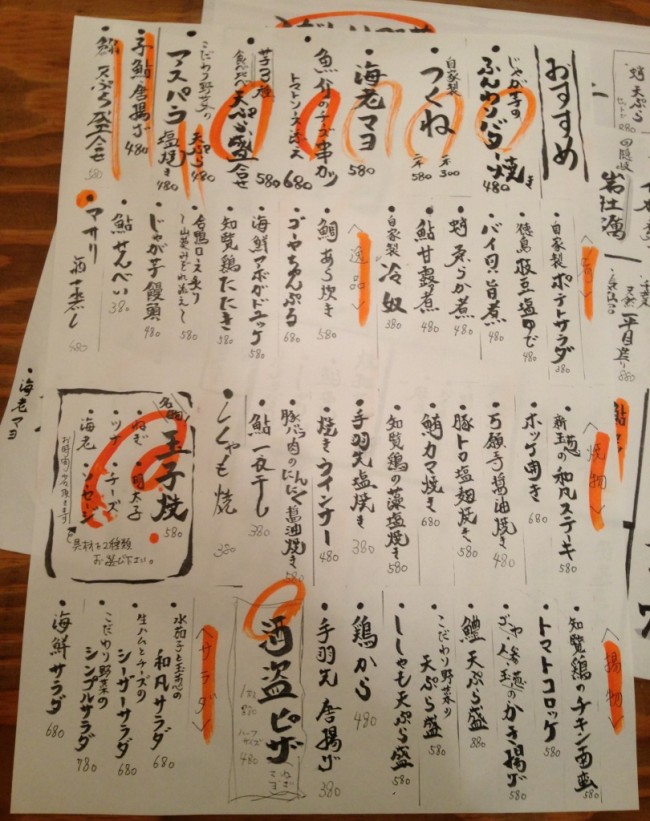 おすすめ
じゃが芋の
ふんわりバター焼き 480
自家製
つくね 二本 300
三本 580
海老マヨ 580
魚介のチーズ串カツ
トマトソース添え 680
芋3種
食べ比べ天ぷら盛合せ 580
こだわり野菜の
アスパラ 天ぷら 480
塩焼き 480
子鮎唐揚げ 480
天ぷら盛合せ 580
自家製 ポテトサラダ 380
徳島 枝豆塩ゆで 480
バイ貝旨煮 480
蛸柔らか煮 480
鮎甘露煮 480
自家製 冷奴 380
〈逸品〉
鯛あら炊き 580
ゴーヤちゃんぷる 680
海鮮アボガドユッケ 580
知覧鶏たたき 580
合鴨ロース炙り
〜山葵みぞれ添え〜 580
じゃが芋饅頭 480
鮎せんべい 380
アサリ 酒蒸し 480
〈焼物〉
新玉葱の和風ステーキ 580
ホッケ開き 680
万願寺醤油焼き 480
豚トロ塩麹焼き 580
鮪カマ焼き 680
知覧鶏の藻塩焼き 580
手羽先塩焼き 380
焼きウインナー 480
豚バラ肉のにんにく醤油焼き 580
鮎一夜干し 380
ししゃも焼 380
名物
玉子焼 580
・ねぎ ・明太子
・ツナ ・チーズ
・海老 ・ソーセージ
具材を2種類
お選び下さい。
お時間少々頂きます
〈揚物〉
知覧鶏のチキン南蛮 580
トマトコロッケ 580
ゴーヤと玉葱のかき揚げ 580
鱧天ぷら盛 880
こだわり野菜の
天ぷら盛 580
ししゃも天ぷら盛 580
鶏から 480
手羽先唐揚げ 380
酒盗ピザ
ハーフサイズ 480
〈サラダ〉
水茄子と玉葱の
和風サラダ 680
生ハムとチーズの
シーザーサラダ 680
こだわり野菜の
シンプルサラダ 780
海鮮サラダ 680
・海老マヨ
蛸天ぷら